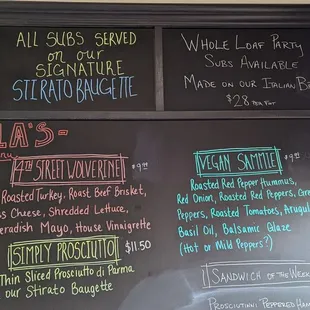 ALL SUBS SERVED
on our
SIGNATURE
STIRATO BAUGETTE
WHOLE LOAF PARTY
SUBS AVAILABLE
MADE ON OUR ITALIAN
$28
LA'S-
4TH STREET WOLVERINE $9.99
Roasted Turkey, Roast Beef Brisket,
Cheese, Shredded Lettuce,
Mayo, House Vinaigrette
SIMPLY PROSCIUTTO $11.50
Thin Sliced Prosciutto di Parma
our Stirato Baugette
VEGAN SAMMIE $9.99
Roasted Red Pepper Hummus,
Red Onion, Roasted Red Peppers,
Peppers, Roasted Tomatoes,
Basil Oil, Balsamic Glaze
(Hot or Mild Peppers?)
SANDWICH OF THE WEEK
PROSCIUTINNI PEPPERED